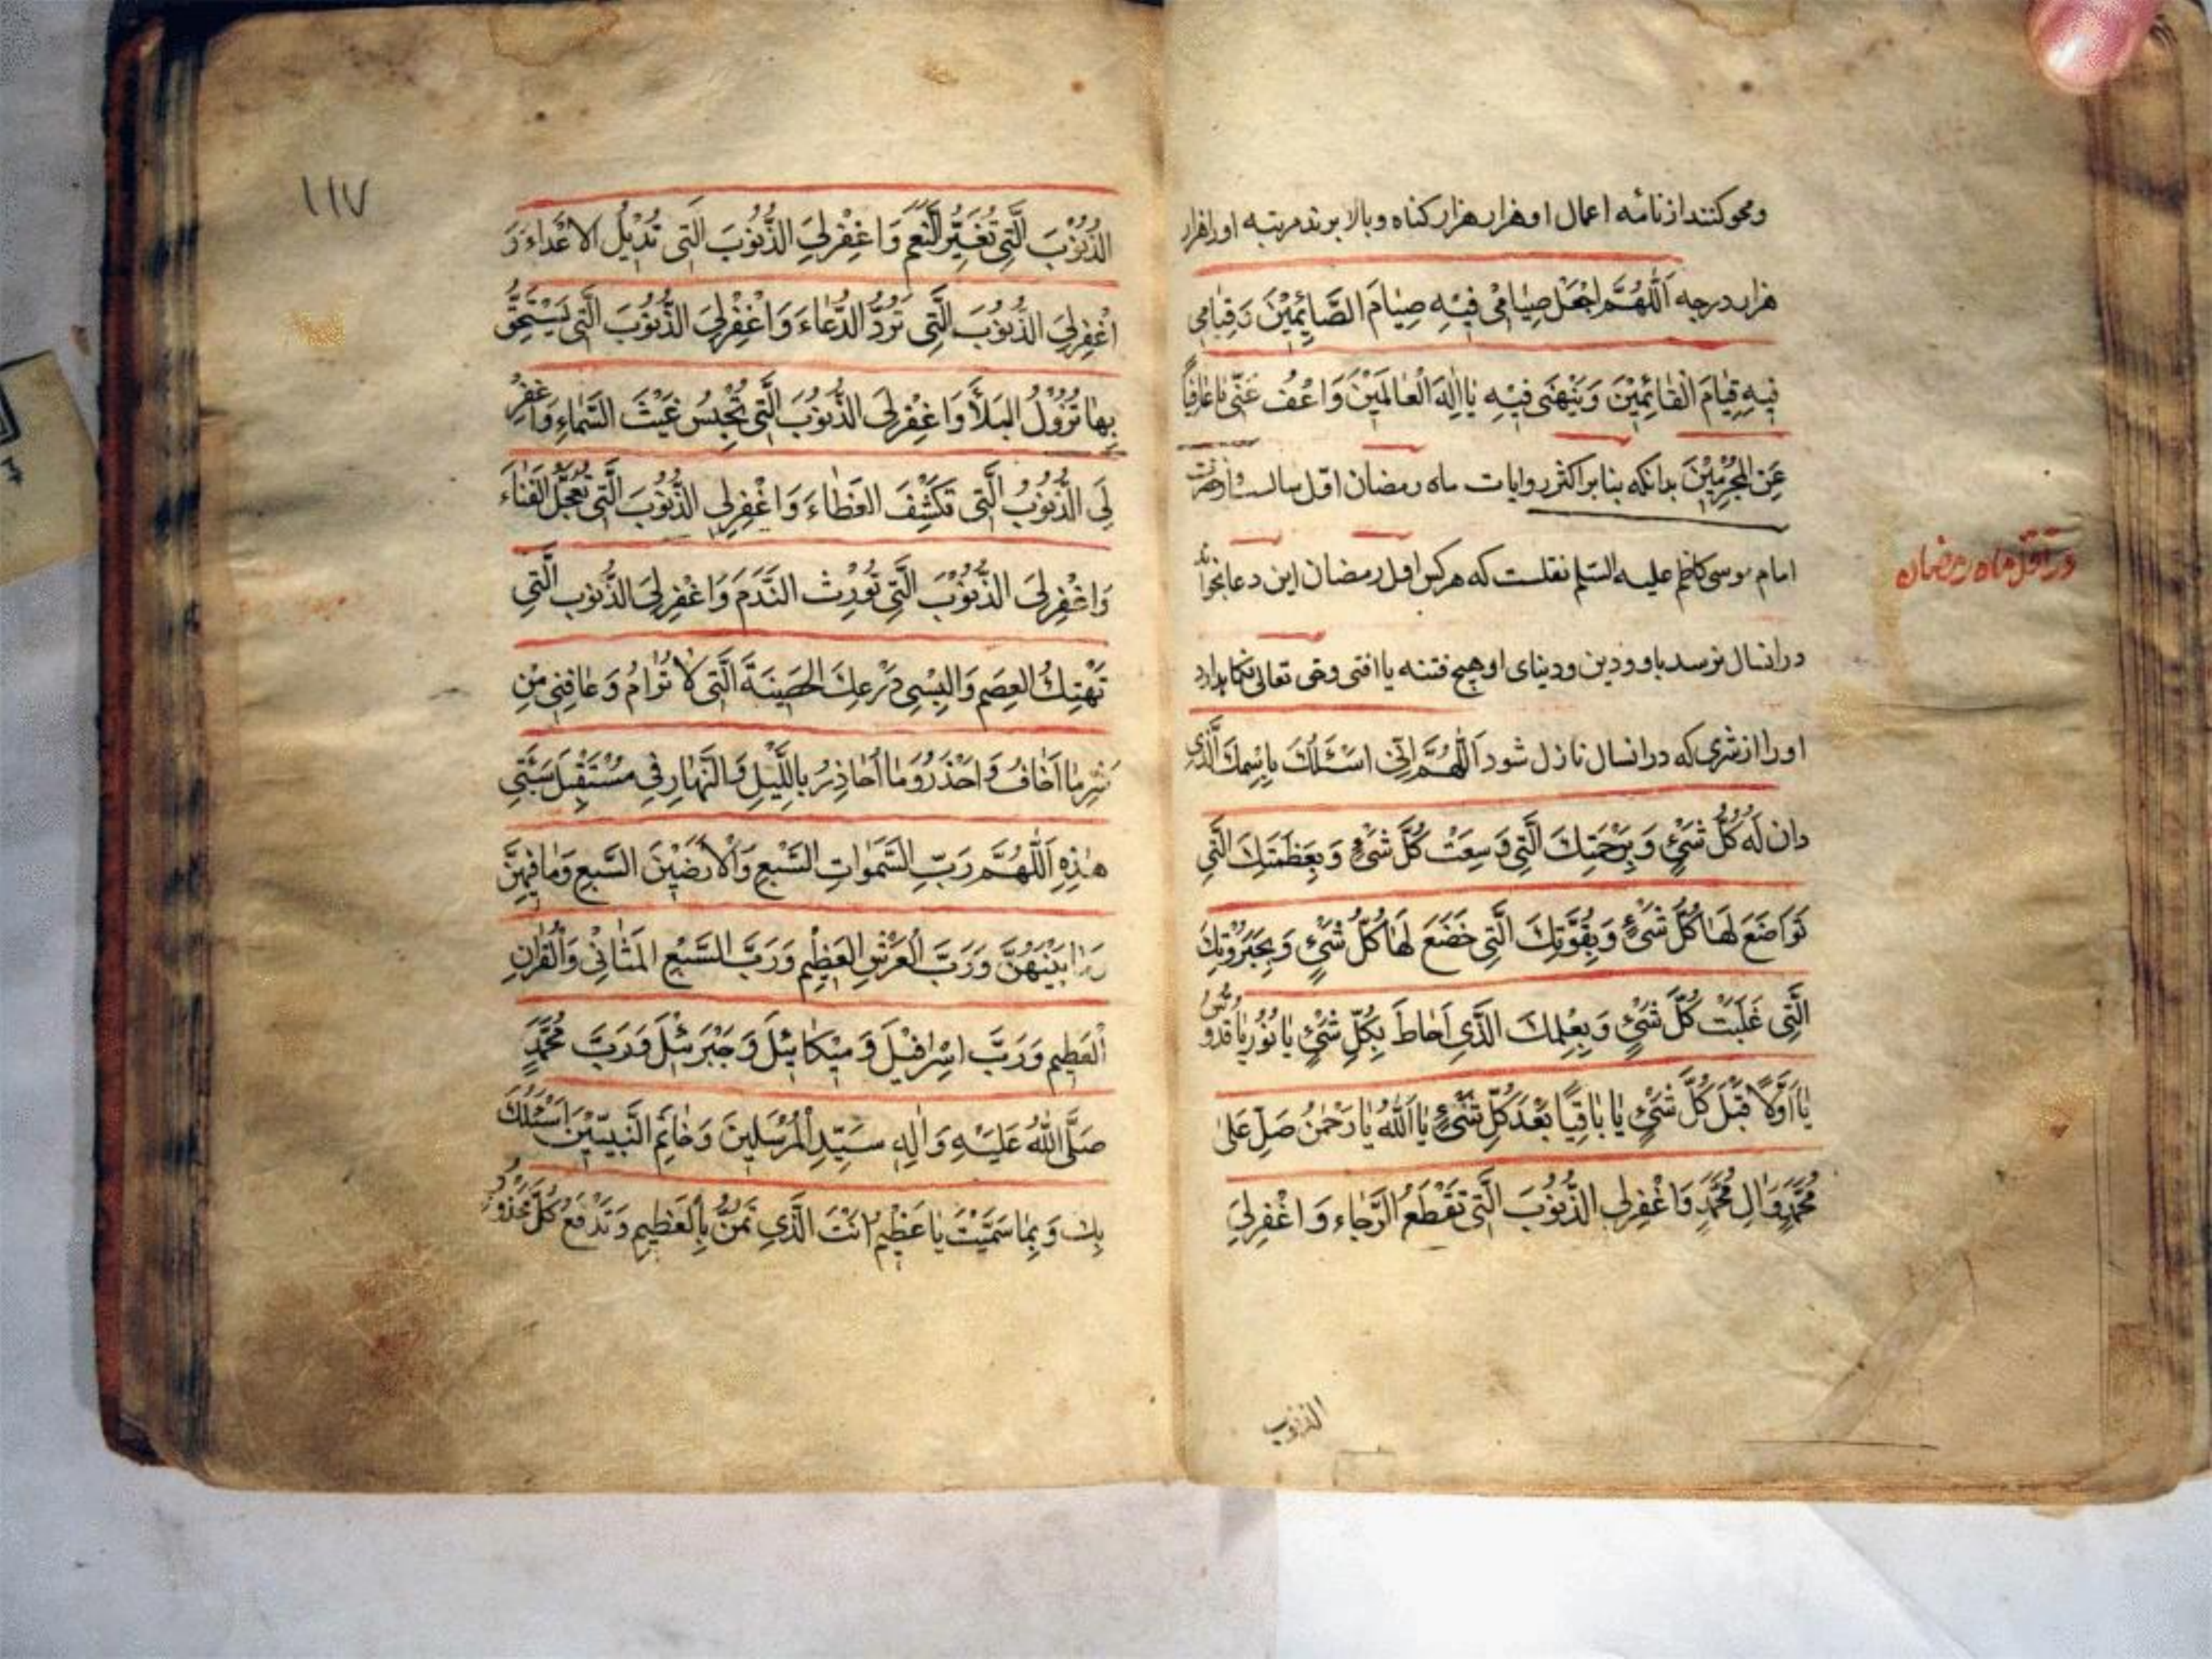 ومحو کنند از نامه اعمال او هزار هزار کناه وبالا برند مرتبه او را هزار
هزار درجه اَللّٰهُمَّ اجْعَلْ صِیٰامی فیٖهِ صِیٰامَ الصَّائِمیٖنَ وَقِیٰامی
فیٖهِ قِیٰامَ الْقٰائِمیٖنَ وَنَبِّهْنی فیٖهِ یٰا اِلٰهَ الْعٰالَمیٖنَ وَاعْفُ عَنّی یٰا عٰافِیاً
عَنِ الْمُجْرِمیٖنَ بدانکه بنا بر اکثر روایات ماه رمضان اول سالست و از حضرت
در اوّل ماه رمضان
امام موسی کاظم علیه السّلم نقلست که هر کس اول رمضان این دعا بخواند
در انسال نرسد باو و دین و دنیای او هیچ فتنه یا افتی وحق تعالی نکاهدارد
او را از شری که در انسال نازل شود اَللّٰهُمَّ اِنّی اَسْئَلُكَ بِاسْمِكَ الَّذی
دانَ لَهُ كُلُّ شَیْءٍ وَبِرَحْمَتِكَ الَّتی وَسِعَتْ كُلَّ شَیْءٍ وَبِعَظَمَتِكَ الَّتی
تَوَاضَعَ لَهٰا كُلُّ شَیْءٍ وَبِقُوَّتِكَ الَّتی خَضَعَ لَهٰا كُلُّ شَیْءٍ وَبِجَبَرُوتِكَ
الَّتی غَلَبَتْ كُلَّ شَیْءٍ وَبِعِلْمِكَ الَّذی اَحٰاطَ بِكُلِّ شَیْءٍ یٰا نُورُ یٰا قُدُّوسُ
یٰا اَوَّلًا قَبْلَ كُلِّ شَیْءٍ یٰا بٰاقِیًا بَعْدَ كُلِّ شَیْءٍ یٰا اَللّٰهُ یٰا رَحْمٰنُ صَلِّ عَلیٰ
مُحَمَّدٍ وَاٰلِ مُحَمَّدٍ وَاغْفِرْ لِیَ الذُّنُوبَ الَّتی تَقْطَعُ الرَّجٰاءَ وَاغْفِرْ لِیَ
الذنوب
۱۱۷
الذُّنُوبَ الَّتی تُغَیِّرُ النِّعَمَ وَاغْفِرْ لِیَ الذُّنُوبَ الَّتی تُدیٖلُ الاَعْدٰاءَ وَ
اغْفِرْ لِیَ الذُّنُوبَ الَّتی تَرُدُّ الدُّعٰاءَ وَاغْفِرْ لِیَ الذُّنُوبَ الَّتی یَسْتَحِقُّ
بِهٰا نُزُولُ البَلآَ وَاغْفِرْ لِیَ الذُّنُوبَ الَّتی تَحْبِسُ غَیْثَ السَّمٰاءِ وَاغْفِرْ
لِیَ الذُّنُوبَ الَّتی تَكْشِفُ الغِطٰاءَ وَاغْفِرْ لِیَ الذُّنُوبَ الَّتی تُعَجِّلُ الفَنٰاءَ
وَاغْفِرْ لِیَ الذُّنُوبَ الَّتی تُورِثُ النَّدَمَ وَاغْفِرْ لِیَ الذُّنُوبَ الَّتی
تَهْتِكُ العِصَمَ وَالبِسْنی دِرْعَكَ الحَصیٖنَةَ الَّتی لٰا تُرٰامُ وَعٰافِنی مِنْ
شَرِّ مٰا اَخٰافُ وَاحْذَرُ وَمٰا اُحٰاذِرُ بِاللَّیْلِ وَالنَّهٰارِ فی مُسْتَقْبَلِ سَنَتی
هٰذِهِ اَللّٰهُمَّ رَبَّ السَّمٰوٰاتِ السَّبْعِ وَالْاَرَضیٖنَ السَّبْعِ وَمٰا فیٖهِنَّ
وَمٰا بَیْنَهُنَّ وَرَبَّ الْعَرْشِ العَظیٖمِ وَرَبَّ السَّبْعِ المَثٰانی وَالْقُرْاٰنِ
الْعَظیٖمِ وَرَبَّ اِسْرٰافیٖلَ وَمیٖكٰائیٖلَ وَجَبْرَئیٖلَ وَرَبَّ مُحَمَّدٍ
صَلَّی اللّٰهُ عَلَیْهِ وَاٰلِهِ سَیِّدِ الْمُرْسَلیٖنَ وَخٰاتِمِ النَّبِیّیٖنَ اَسْئَلُكَ
بِكَ وَبِمٰا سَمَّیْتَ یٰا عَظیٖمُ اَنْتَ الَّذی تَمُنُّ بِالْعَظیٖمِ وَتَدْفَعُ كُلَّ مَحْذُورٍ